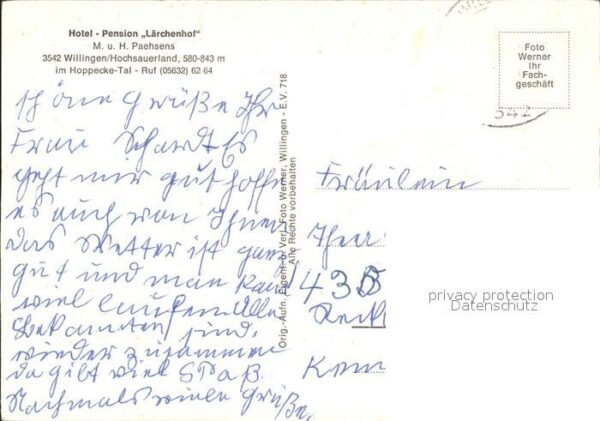 Hotel - Pension „Lärchenhof"
M. u. H. Paehsens
3542 Willingen/Hochsauerland, 580-843 m
im Hoppecke-Tal - Ruf (05632) 62 64
Foto
Werner
Ihr
Fach-
geschäft
342
schöne Grüße Ihr
Frau Schardt Es
geht mir gut hoffe
es auch von Ihnen
das Wetter ist ganz
gut und man kan
viel laufen Alle
bekannten sind,
wieder zusammen
da gibt viel Spaß.
Nochmals viele Grüße.
Orig.-Aufn. Eigent. u. Verl. Foto Werner, Willingen - E.V. 718
Alle Rechte vorbehalten
Fräulein
435
privacy protection
Datenschutz